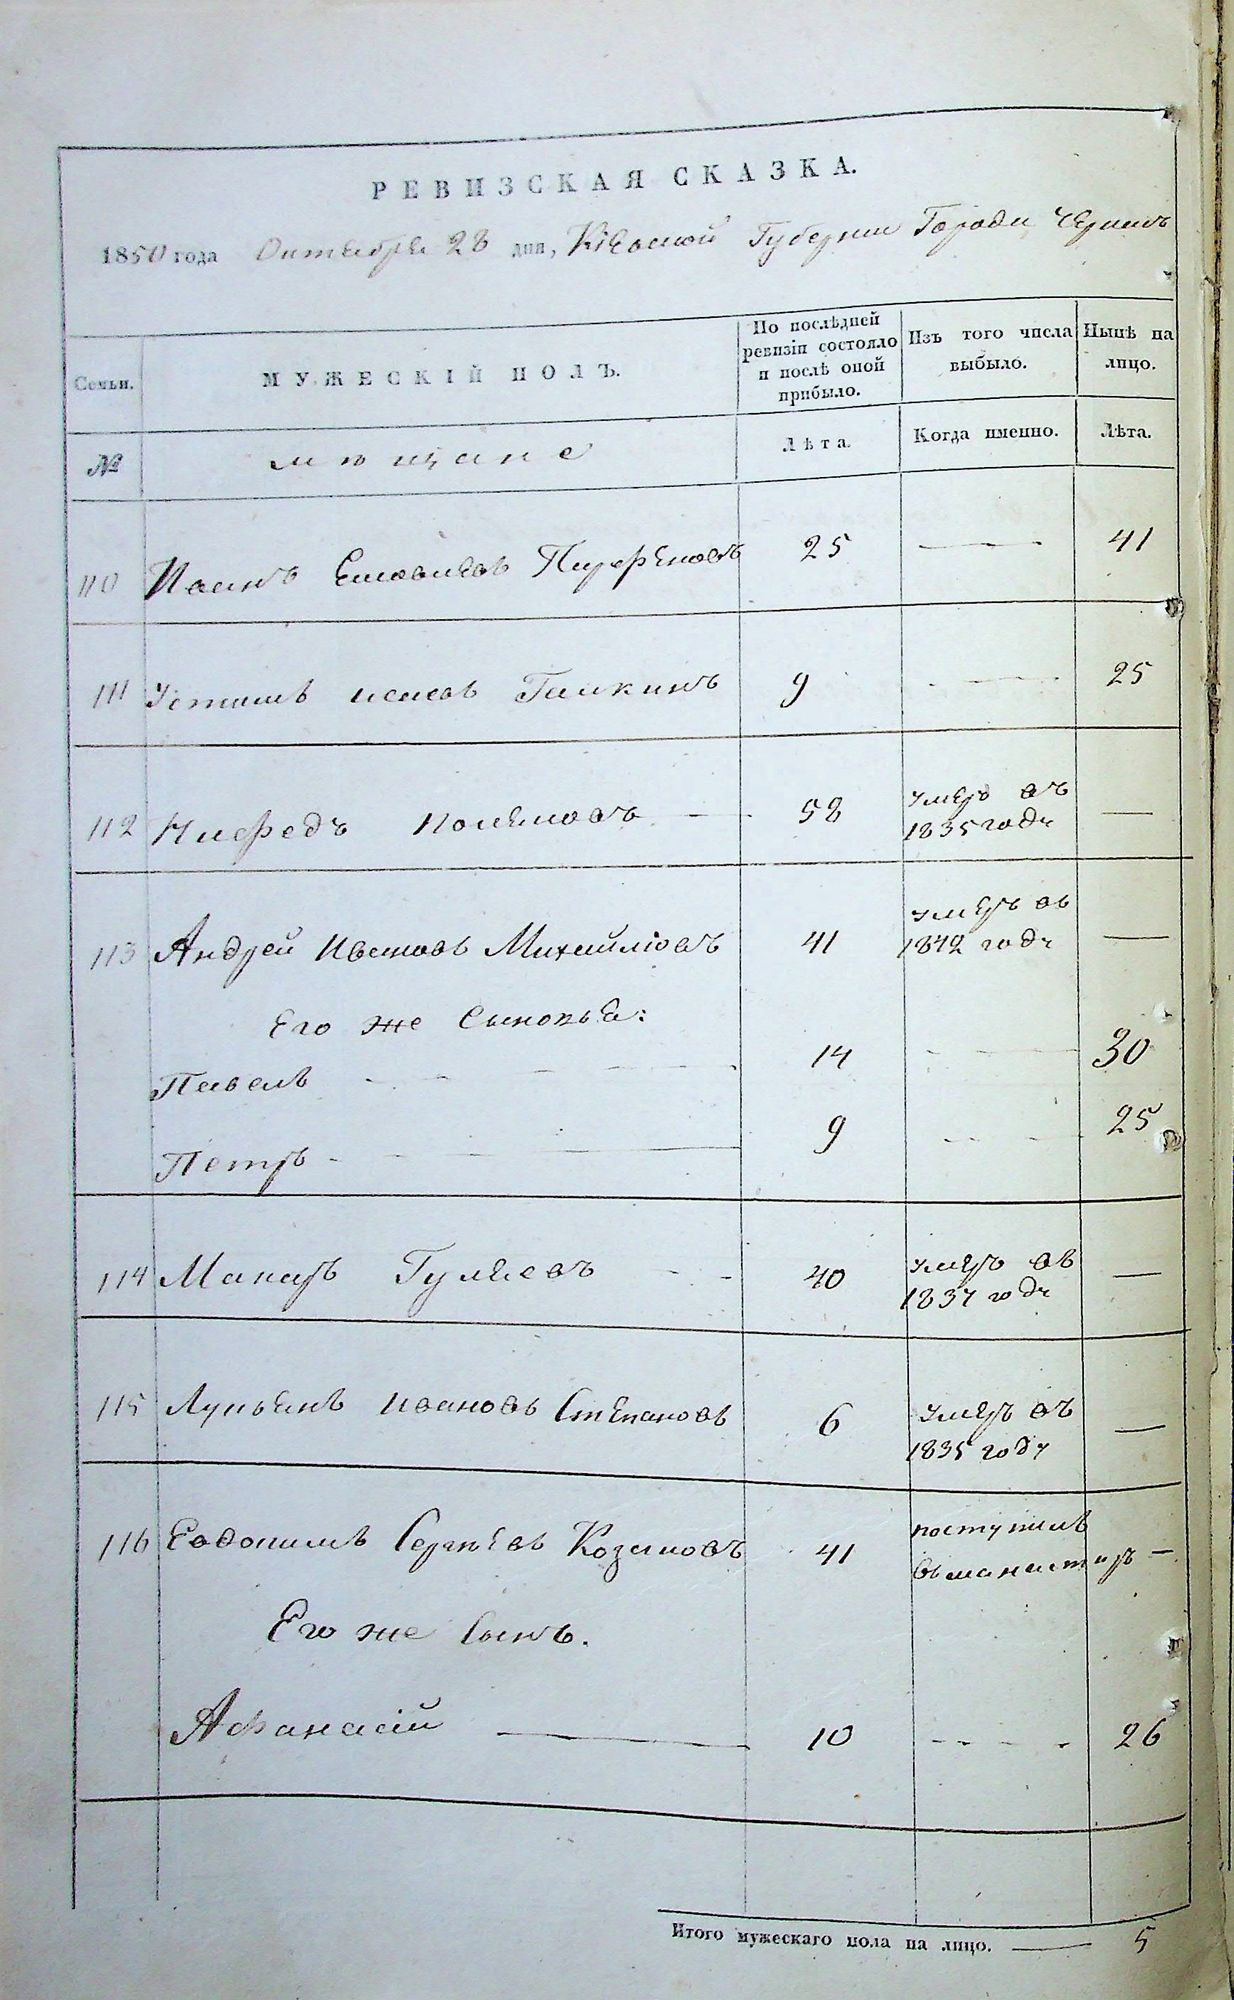 РЕВИЗСКАЯ СКАЗКА.
1850 года Октября 28 дня, Кіевской Губерніи Города
Семьи.
МУЖЕСКІЙ ПОЛЪ.
По послѣдней ревизіи состояло и послѣ оной прибыло.
Изъ того числа выбыло.
Нынѣ на лицо.
№
мѣщане
Лѣта.
Когда именно.
Лѣта.
110 Иванъ 25 — 41
111 Устинъ Галкинъ 9 — 25
112 58 умеръ въ 1835 году —
113 Андрей Ивановъ Михайловъ 41 умеръ въ 1842 году —
Его же Сыновья:
Павелъ 14 — 30
Петръ 9 — 25
114 Макаръ Гуляевъ 40 умеръ въ 1837 году —
115 Лукьянъ Ивановъ Степановъ 6 умеръ въ 1835 году —
116 Евдокимъ Сергѣевъ Козановъ 41 поступилъ въ манастиръ —
Его же Сынъ.
Афанасій — 10 — 26
Итого мужескаго пола на лицо. — 5